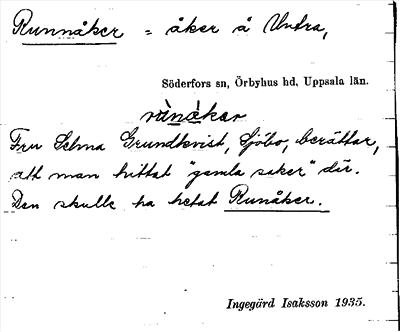 Runnåker = åker å Untra,
Söderfors sn, Örbyhus hd, Uppsala län.
rùnå̀kar
Fru Selma Grundkvist, Sjöbo, berättar,
att man hittat "gamla saker" där.
Den skulle ha hetat Runåker.
Ingegärd Isaksson 1935.